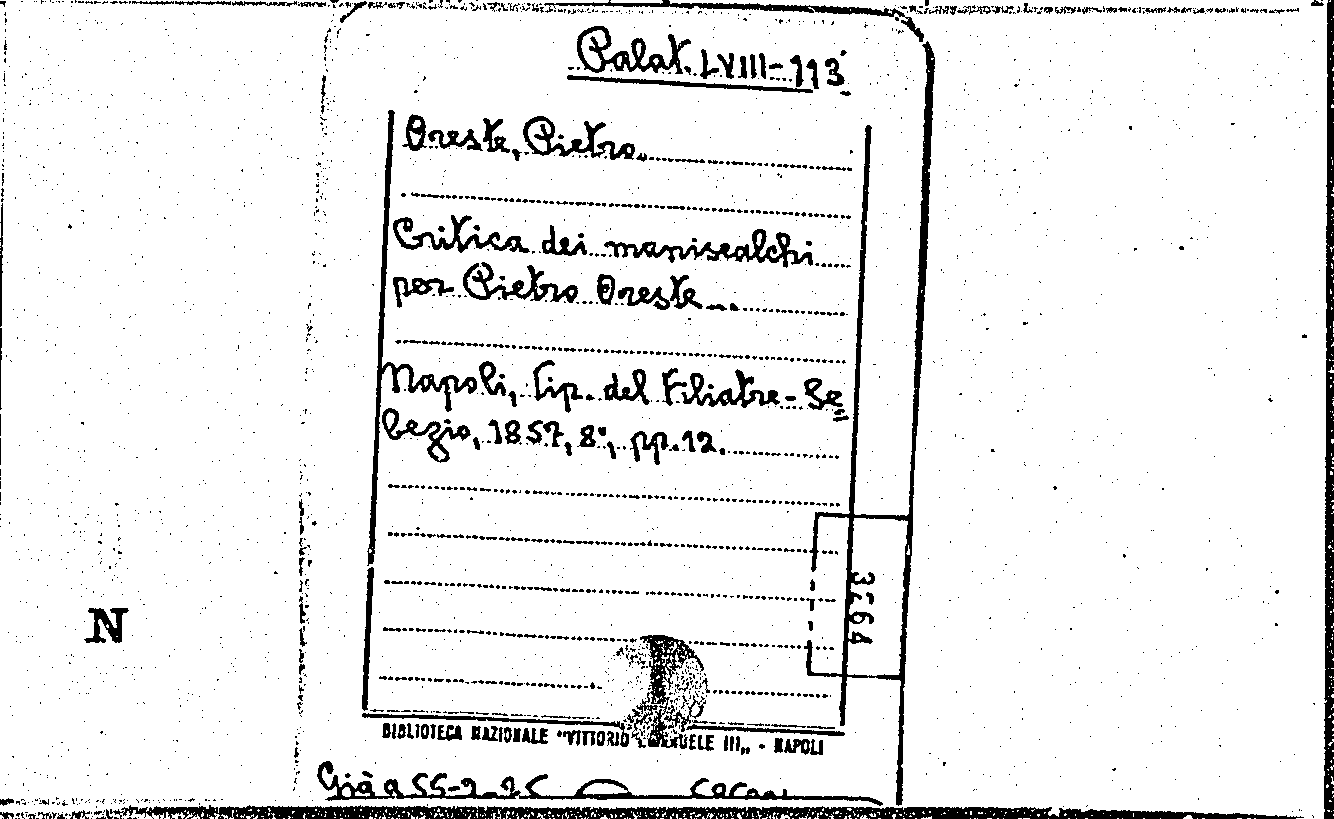 Palat. LVIII-113
Oreste, Pietro.
Critica dei maniscalchi
per Pietro Oreste...
Napoli, tip. del Filiatre-Se„
bezio, 1857, 8°, pp. 12.
3264
N
BIBLIOTECA NAZIONALE "VITTORIO EMANUELE III„ - NAPOLI
Già a 55-2-25